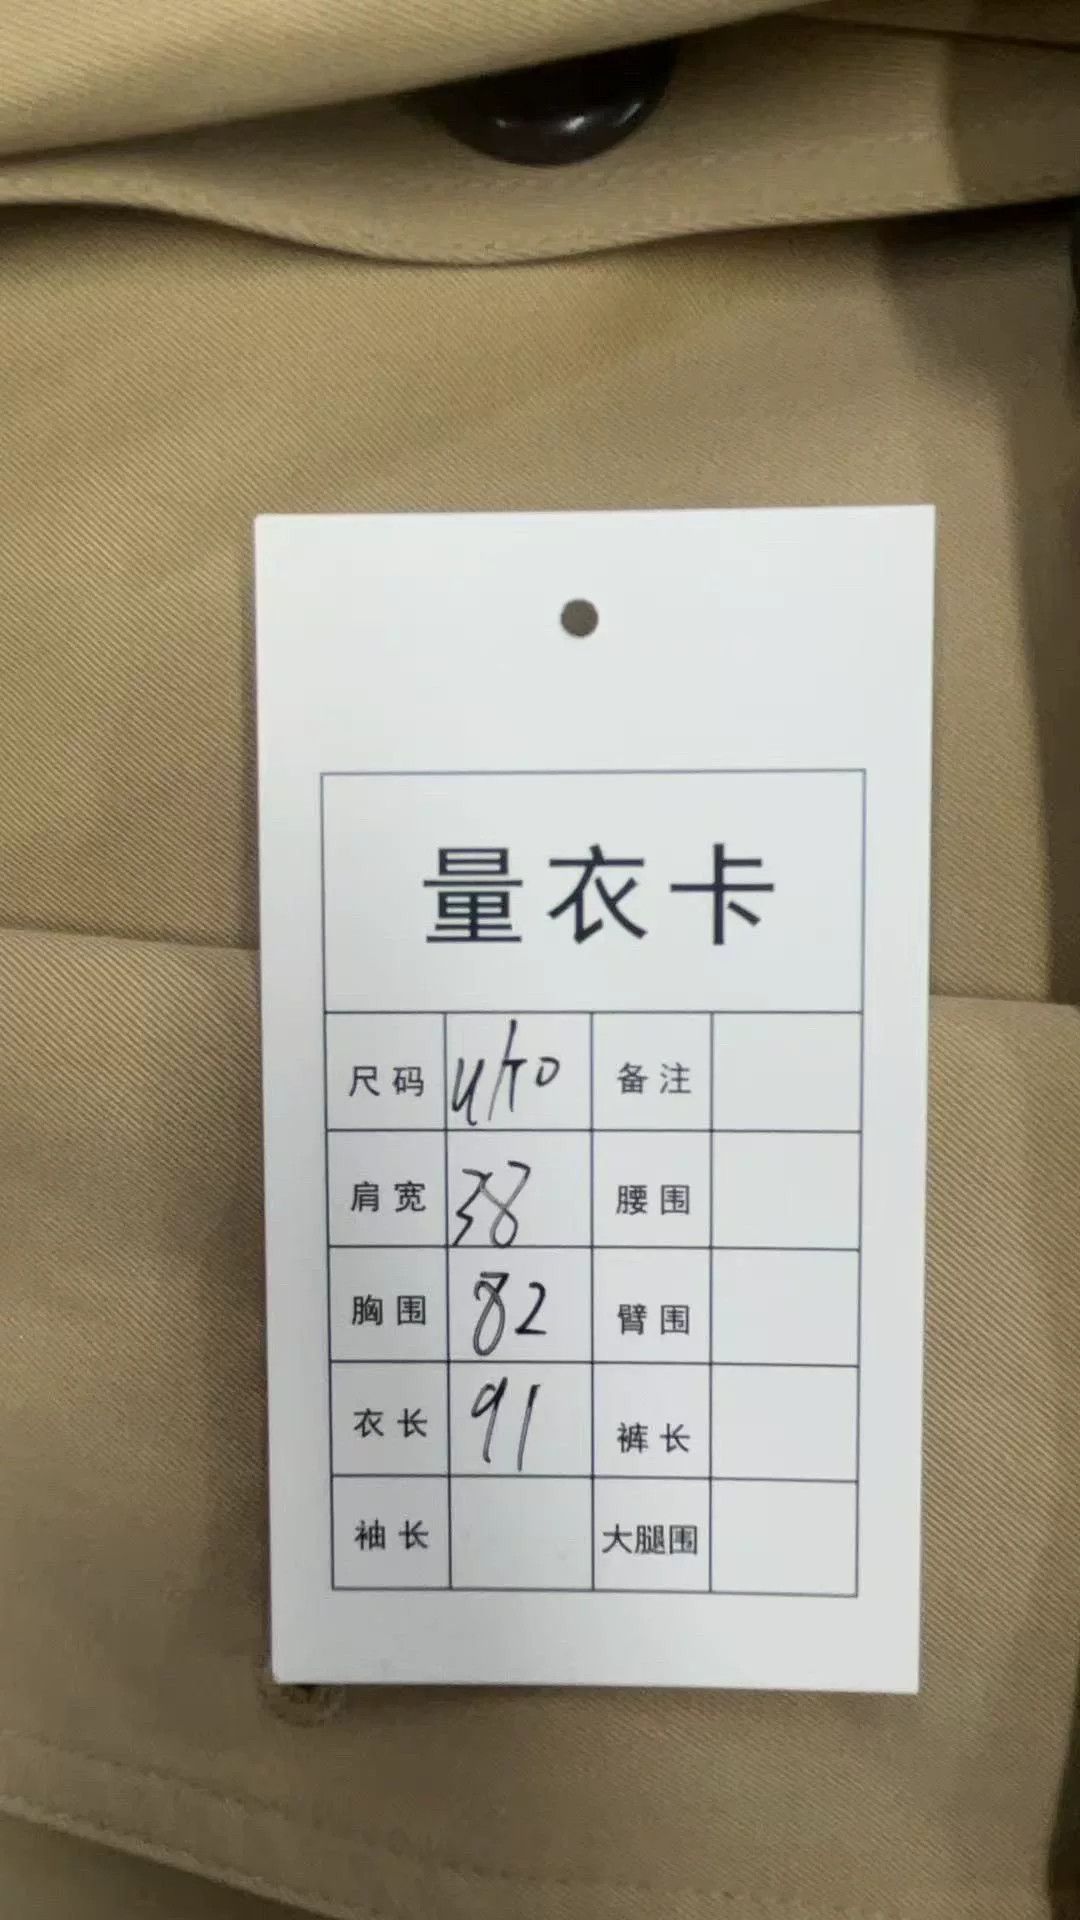 量衣卡
尺码 备注
肩宽 38 腰围
胸围 82 臂围
衣长 91 裤长
袖长 大腿围